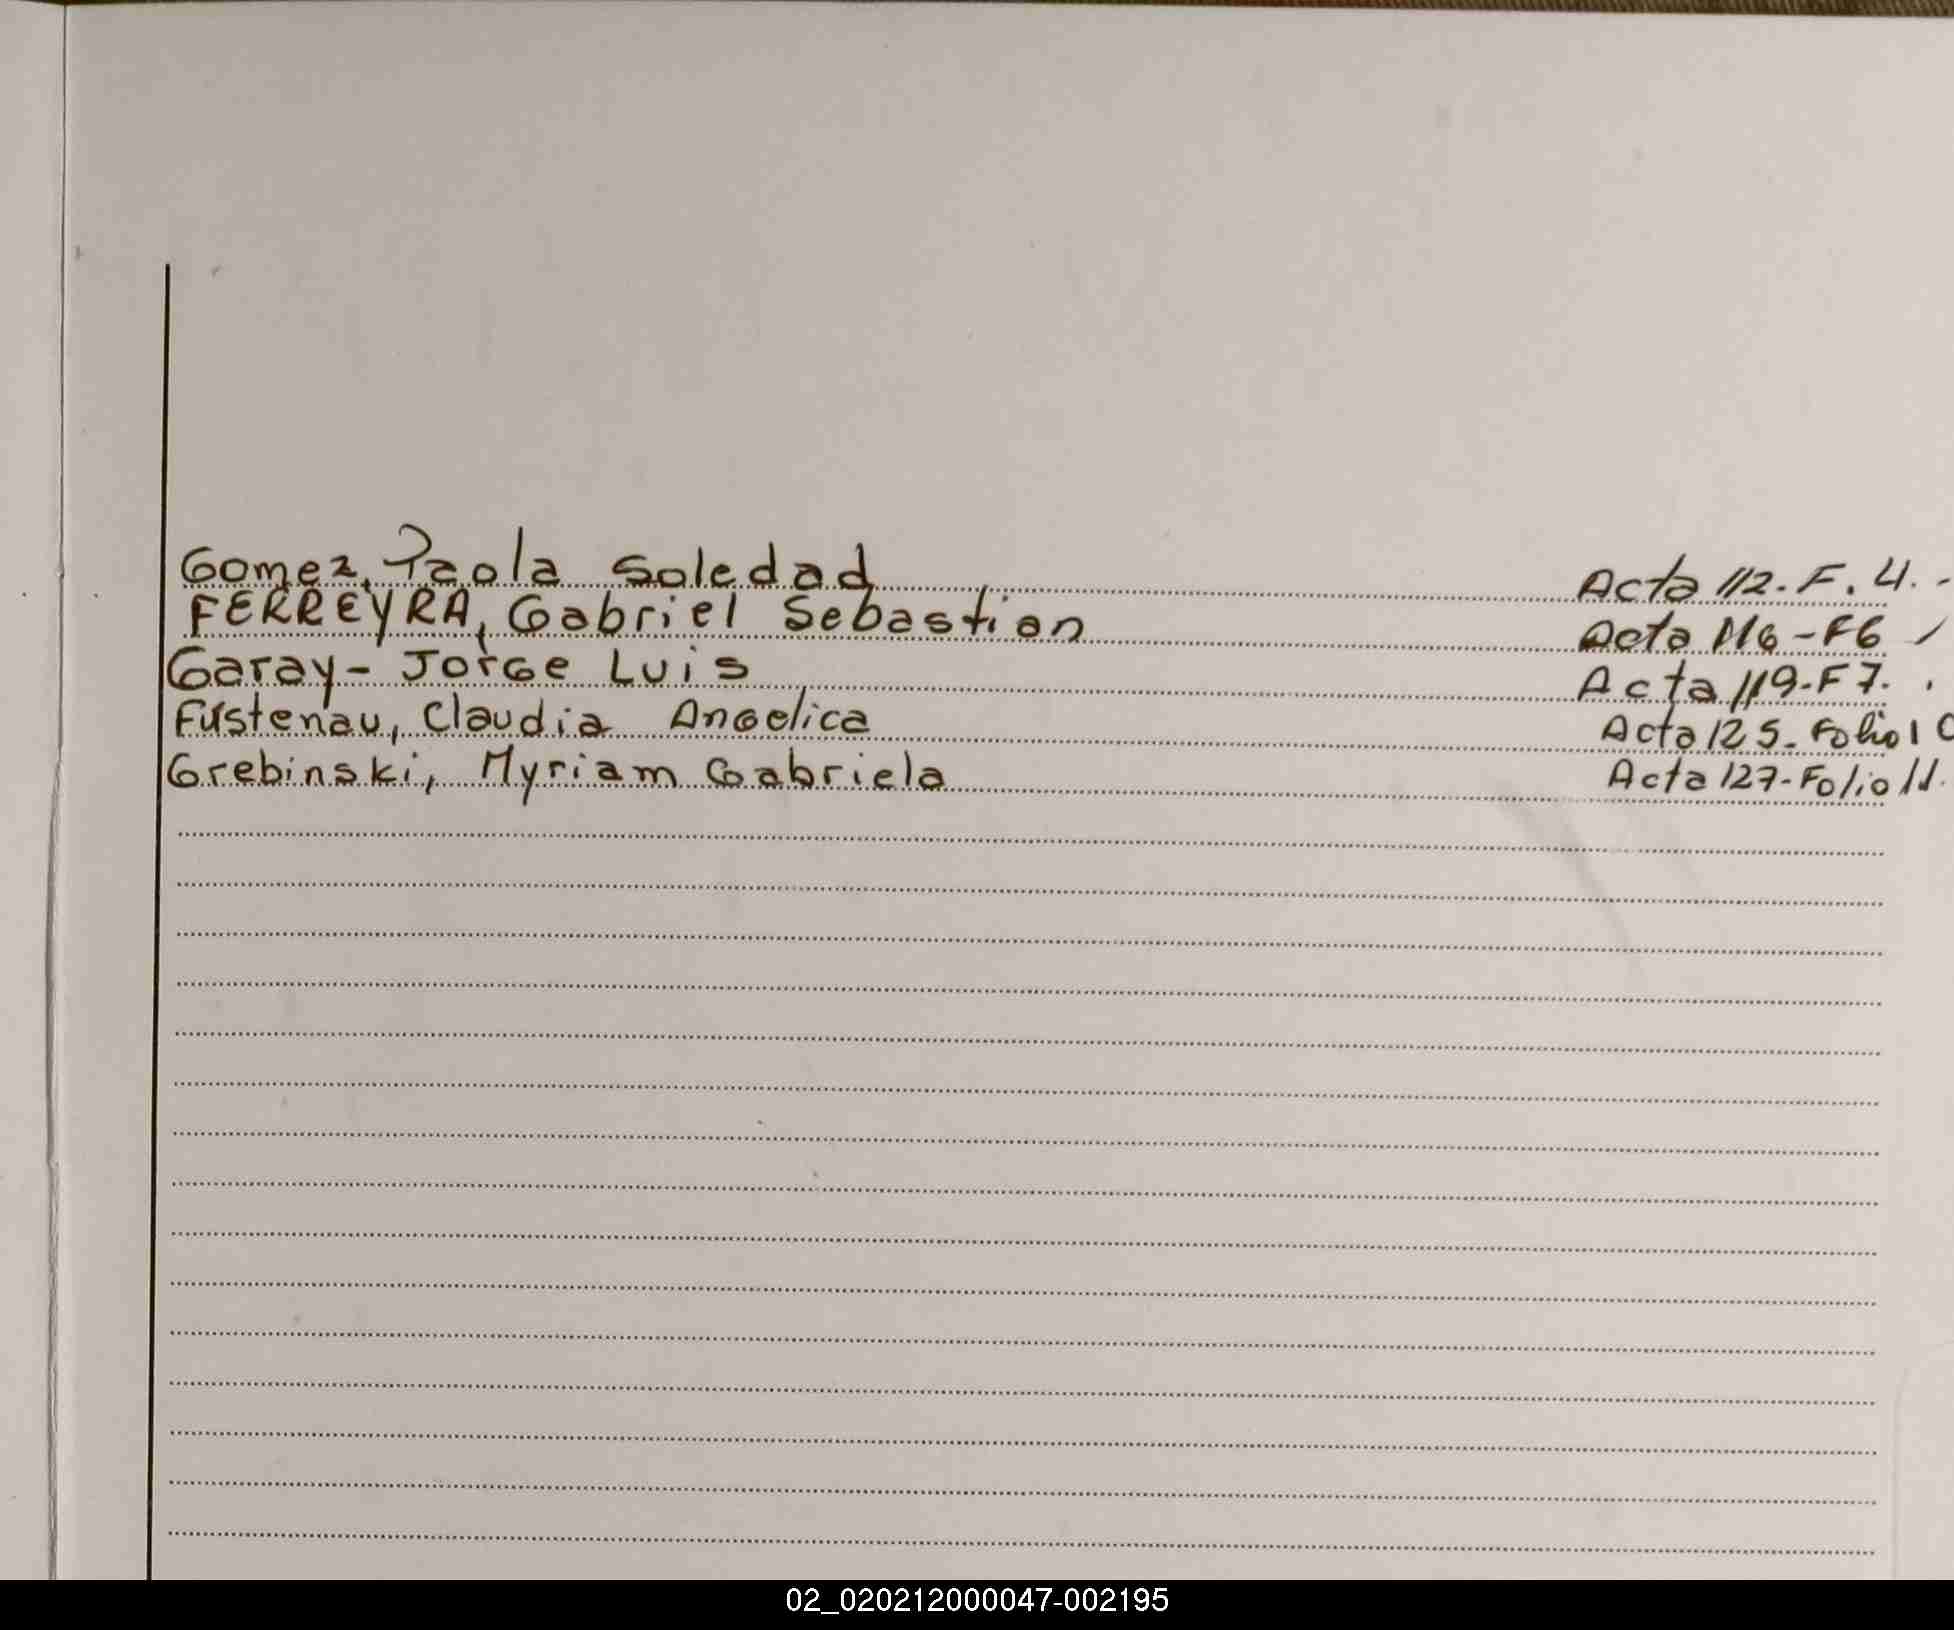 Gomez, Paola Soledad Acta 112. F. 4. -
FERREYRA, Gabriel Sebastian Acta 116 - F6
Garay - Jorge Luis Acta 119 - F7.
Fustenau, Claudia Angelica Acta 125 - Folio 10
Grebinski, Myriam Gabriela Acta 127 - Folio 11.
02_020212000047-002195